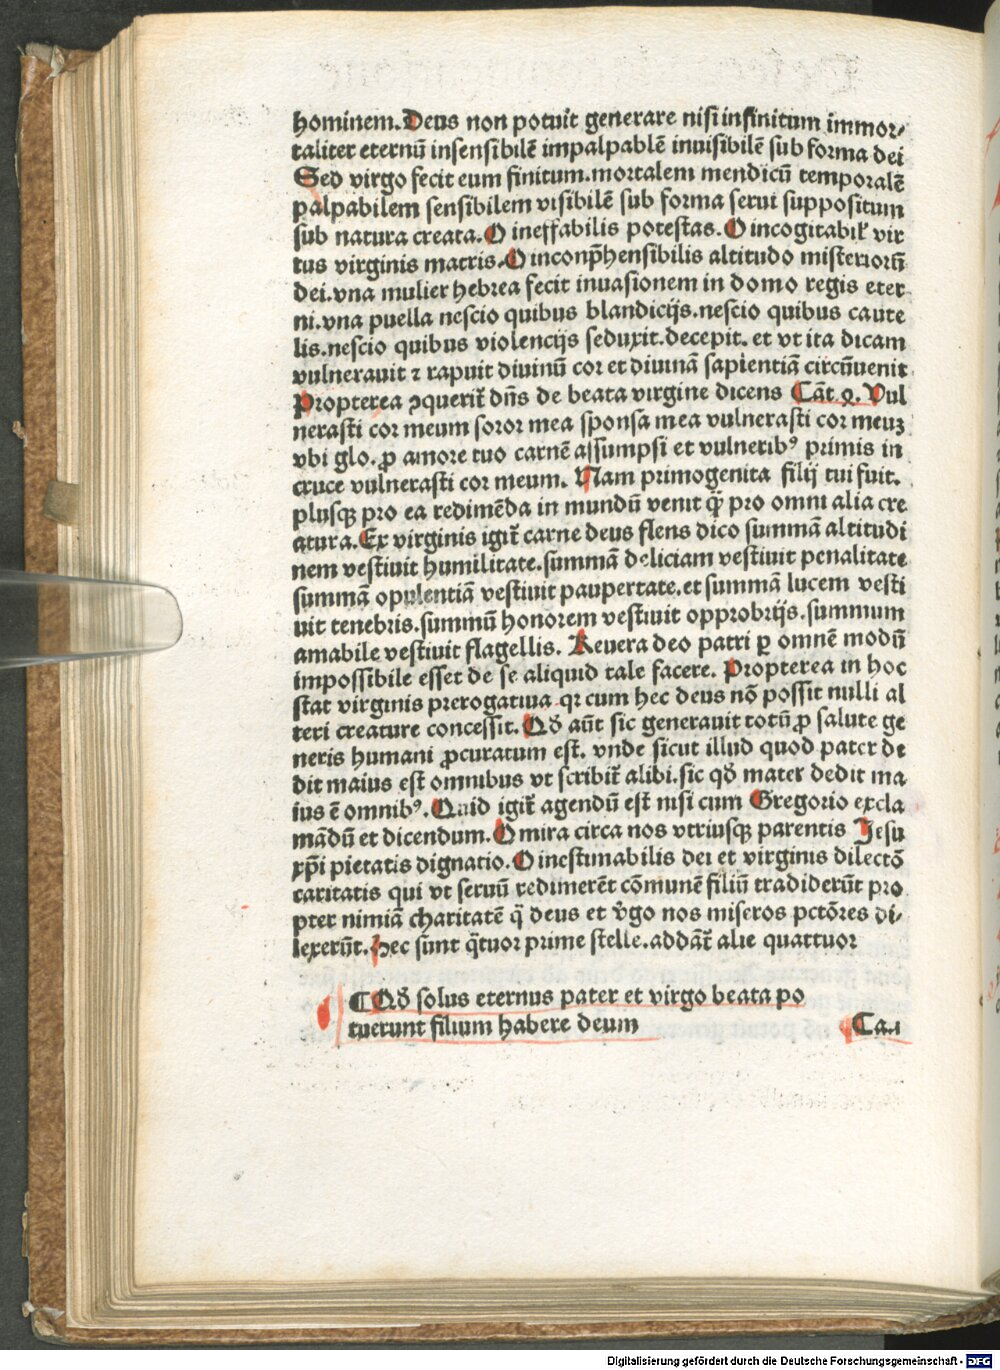 hominem. Deus non potuit generare nisi infinitum immor⸗
taliter eternū insensibilē impalpablē inuisibilē sub forma dei
Sed virgo fecit eum finitum. mortalem mendicū temporalē
palpabilem sensibilem visibilē sub forma serui suppositum
sub natura creata. O ineffabilis potestas. O incogitabil' vir
tus virginis matris. O inconp̄hensibilis altitudo misteriorū
dei. vna mulier hebrea fecit inuasionem in domo regis eter
ni. vna puella nescio quibus blandicijs. nescio quibus caute
lis. nescio quibus violencijs seduxit. decepit. et vt ita dicam
vulnerauit ⁊ rapuit diuinū cor et diuinā sapientiā circūuenit
Propterea ꝯquerit̄ dn̄s de beata virgine dicens Cāt. 2. Vul
nerasti cor meum soror mea sponsa mea vulnerasti cor meuꝫ
vbi glo. ꝓ amore tuo carnē assumpsi et vulnerib⁹ primis in
cruce vulnerasti cor meum. Nam primogenita filij tui fuit.
plusqꝫ pro ea redimēda in mundū venit q̄ pro omni alia cre
atura. Ex virginis igit̄ carne deus flens dico summā altitudi
nem vestiuit humilitate. summā deliciam vestiuit penalitate
summā opulentiā vestiuit paupertate. et summā lucem vesti
uit tenebris. summū honorem vestiuit opprobrijs. summum
amabile vestiuit flagellis. Reuera deo patri ꝑ omnē modū
impossibile esset de se aliquid tale facere. Propterea in hoc
stat virginis prerogatiua qr cum hec deus nō possit nulli al
teri creature concessit. Qd̄ aūt sic generauit totū ꝓ salute ge
neris humani ꝓcuratum est. vnde sicut illud quod pater de
dit maius est omnibus vt scribit̄ alibi. sic qd̄ mater dedit ma
ius ē omnib⁹. Quid igit̄ agendū est nisi cum Gregorio excla
mādū et dicendum. O mira circa nos vtriusqꝫ parentis Jesu
xp̄i pietatis dignatio. O inestimabilis dei et virginis dilectō
caritatis qui vt seruū redimerēt cōmunē filiū tradiderūt pro
pter nimiā charitatē q̄ deus et v̄go nos miseros pctōres di⸗
lexerūt. Hec sūnt q̄tuor prime stelle. addāt̄ alie quattuor
¶ Qd̄ solus eternus pater et virgo beata po
tuerunt filium habere deum Ca. i
Digitalisierung gefördert durch die Deutsche Forschungsgemeinschaft - DFG